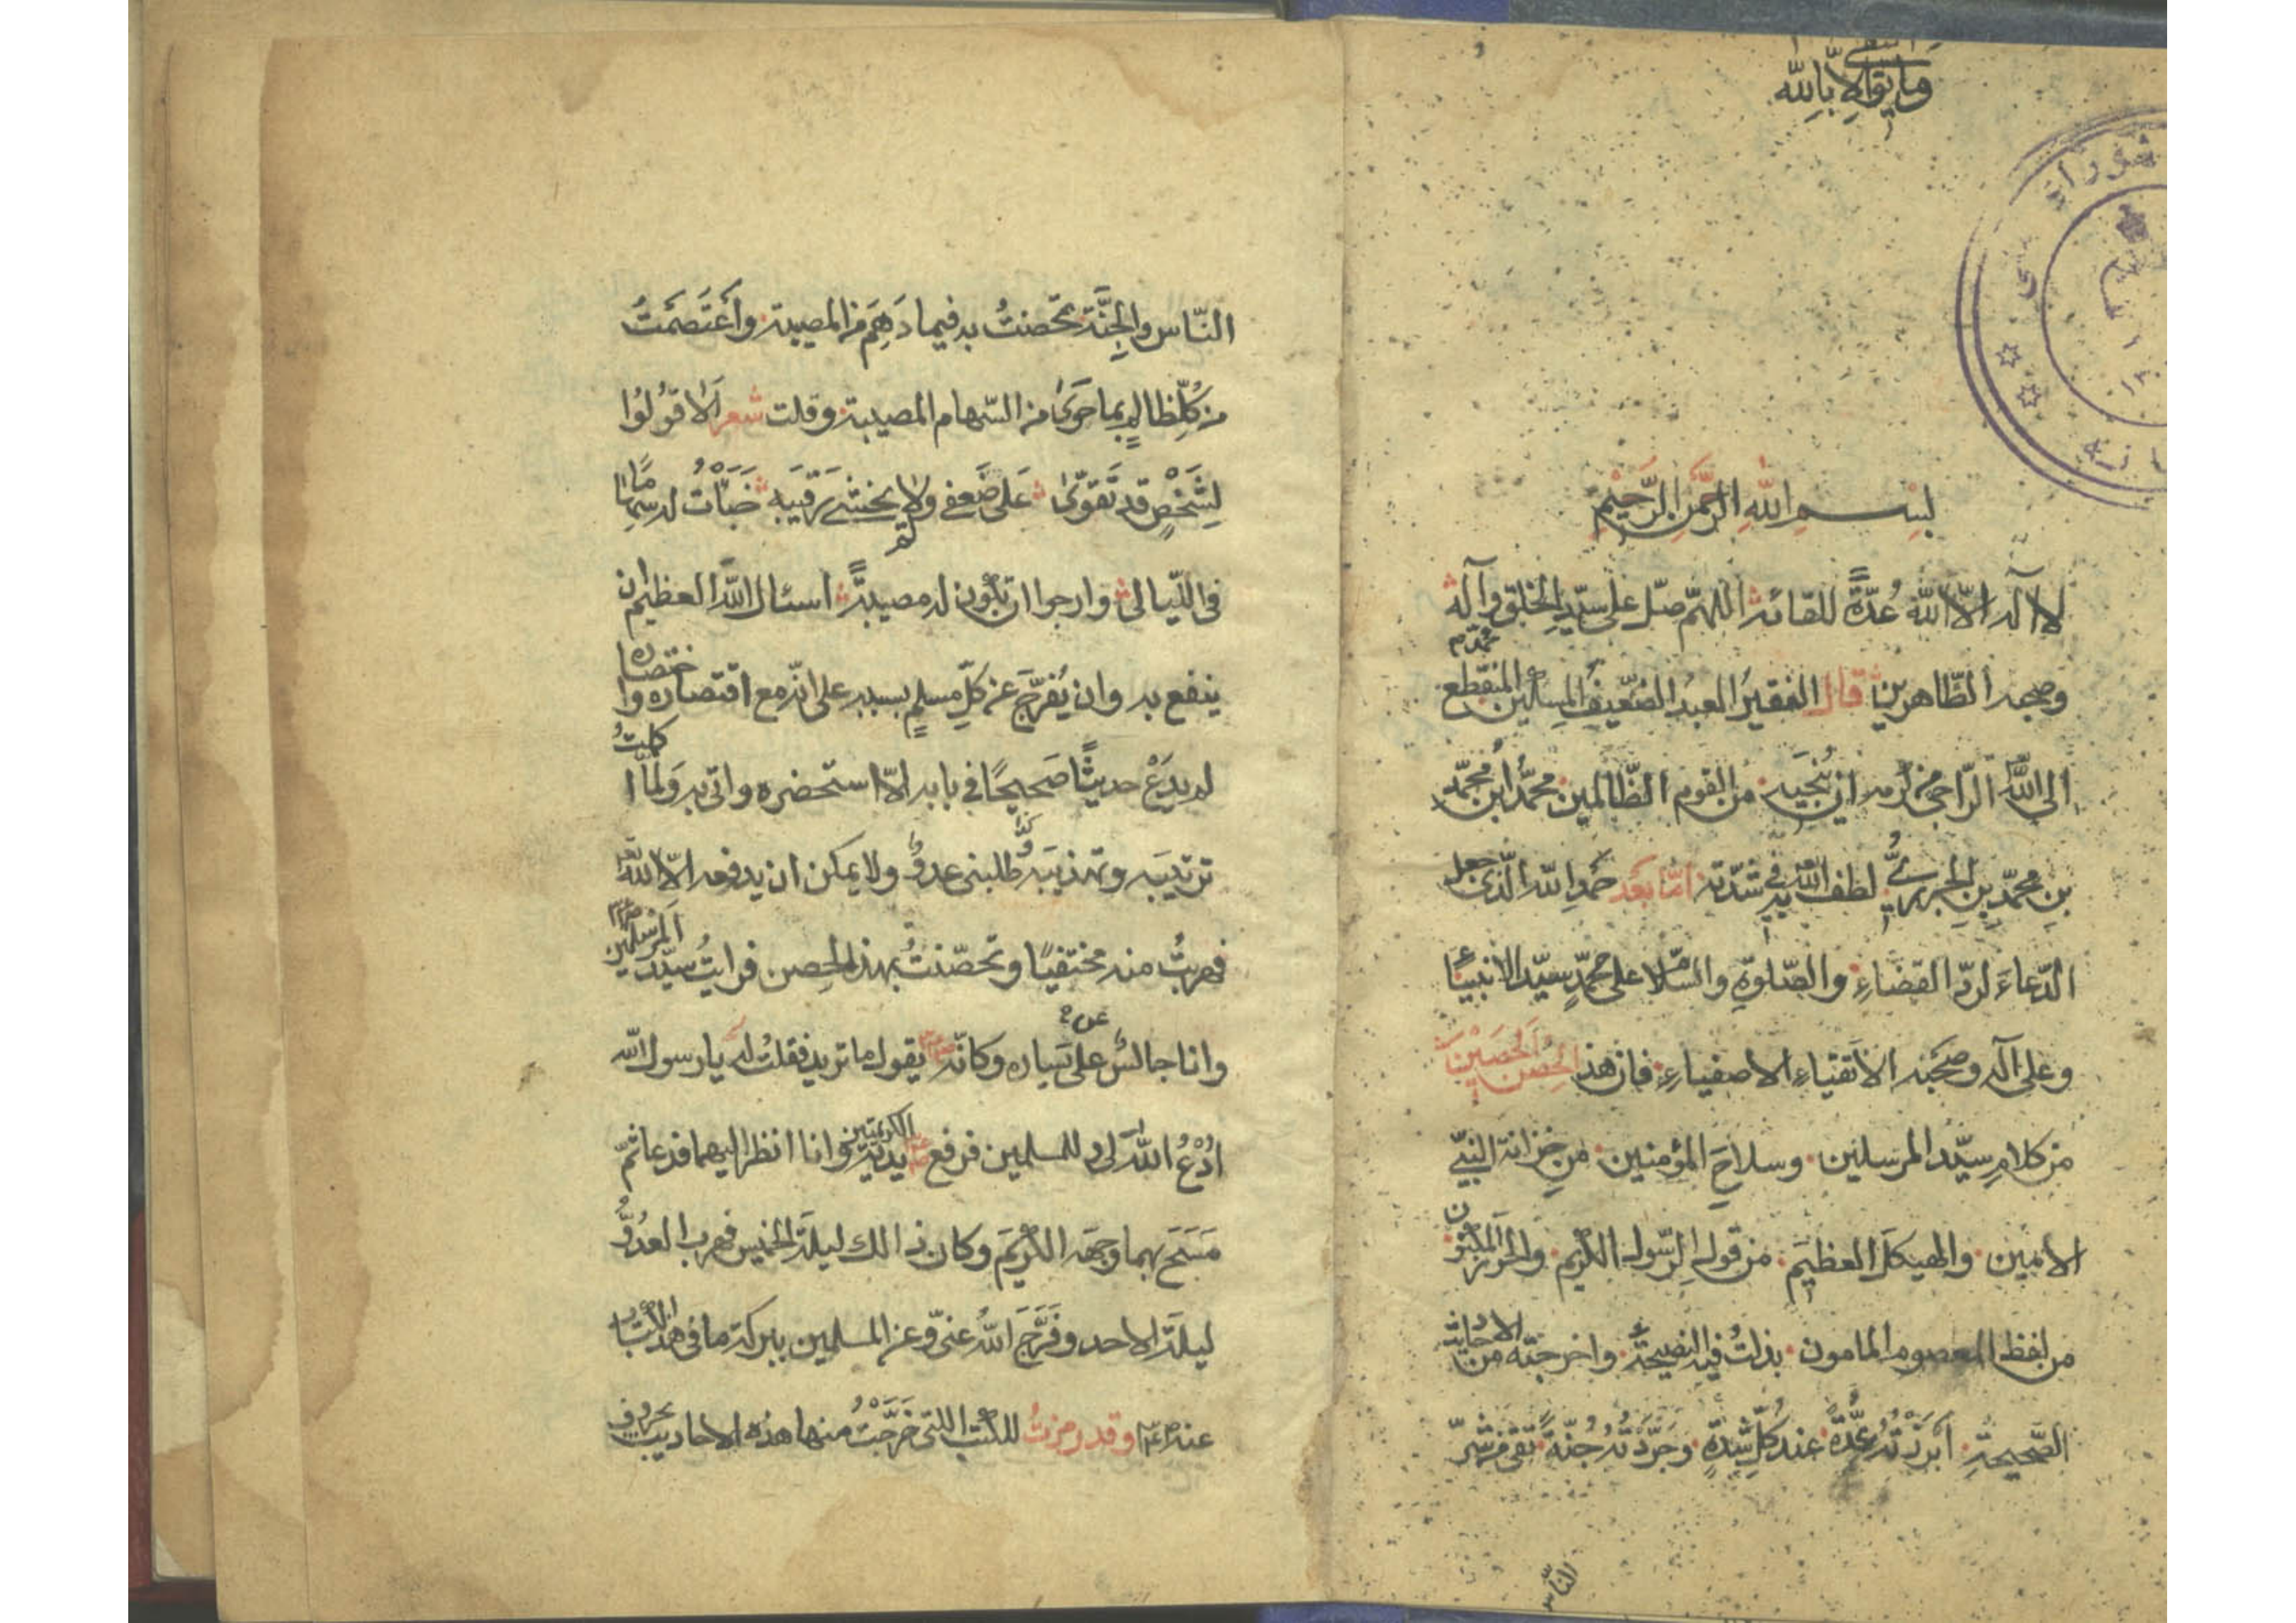 وما ثقتي إلا بالله
بسم الله الرحمن الرحيم
لا آله الا الله عُدّةً للقائه اللهم صل على سيد الخلق محمد وآله
وصحبه الطاهرين قال الفقير العبد الضعيف المسكين المنقطع
الى الله الراجى من كرمه ان يُنجيه من القوم الظالمين محمد ابن محمد
بن محمد بن الجزري لطف الله به في شدته اما بعد حمد الله الذى جعل
الدعاء لرد القضاء والصلوة والسلام على محمد سيد الانبياء
وعلى آله وصحبه الاتقياء الاصفياء فان هذا الحصن الحصين
من كلام سيد المرسلين وسلاح المؤمنين من خزانة النبي
الامين والهيكل العظيم من قول الرسول الكريم والحرز المكنون
من لفظ المعصوم المامون بذلت فيه النصيحة واخرجته من الاحاديث
الصحيحة ابرزته عُدّةً عند كل شدة وجردته جُنّةً تقى من شر
الناس
الناس والجِنّة تحصنتُ به فيما دَهِمَ من المصيبة وأعتصمتُ
من كل ظالم بما حوى من السهام المصيبة وقلت شعر ألا قولوا
لشخص قد تقوّى على ضعفى ولم يخشى رقيبه خبأت له سهاما
فى الليالى وارجوا ان تكون له مصيبة اسئال الله العظيم ان
ينفع به وان يُفرّج عن كل مسلم بسببه على انه مع اقتصاره واختصاره
لم يدع حديثًا صحيحًا في بابه الا استحضره واتى به ولما اكملتُ
ترتيبه وتهذيبه طلبنى عدوٌّ ولا يمكن ان يدفعه الا الله تعالى
فهربتُ منه مختفيًا وتحصّنتُ بهذا الحصن فرايتُ سيد المرسلين صلعم
وانا جالسٌ على يساره وكانه صلعم يقول ما تريد فقلتُ له يا رسول الله
ادعُ الله لى و للمسلمين فرفع صلعم يديه الكريمتين وانا انظر اليهما فدعا ثم
مسح بهما وجهه الكريم وكان ذالك ليلة الخميس فهرب العدوّ
ليلة الاحد وفرّج الله عنى وعن المسلمين ببركة ما فى هذا الكتاب
عنه صلعم وقد رمزتُ للكتب التى خرّجتُ منها هذه الاحاديث بحروف